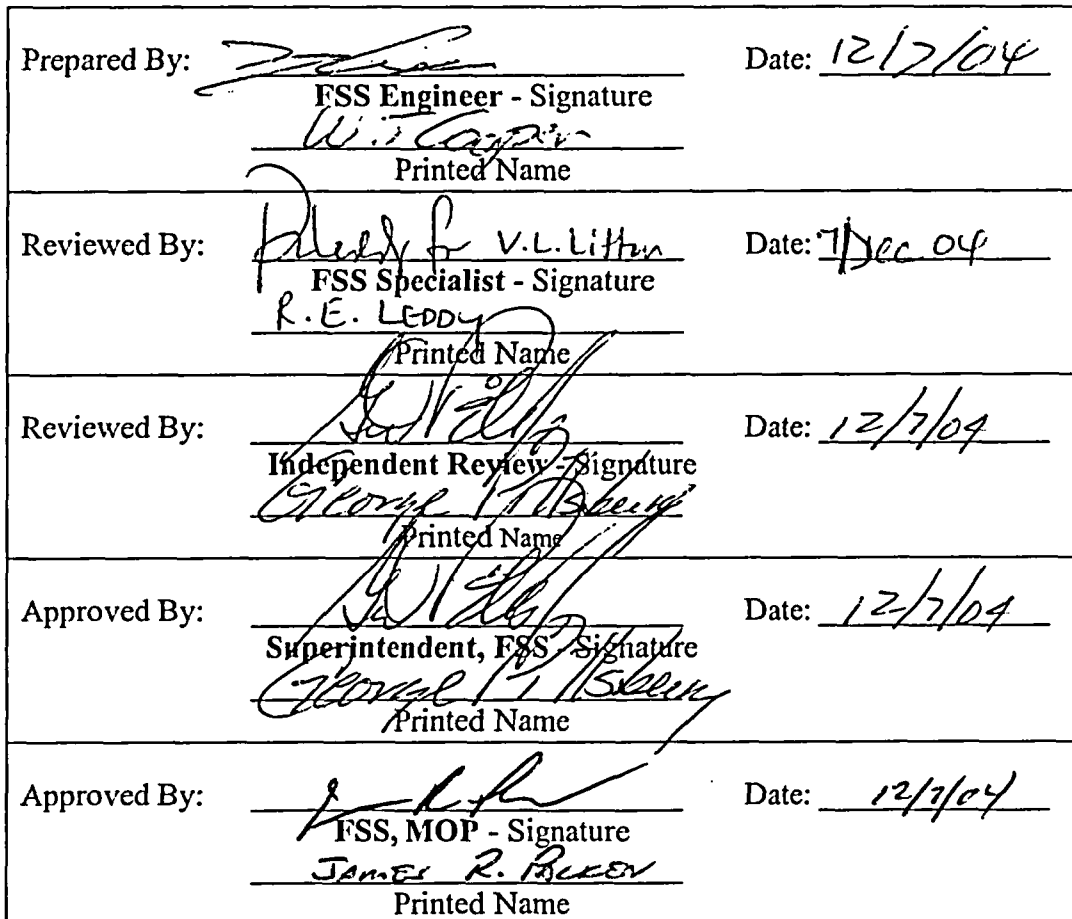 Prepared By: Date: 12/7/04
FSS Engineer - Signature
W.J. Cooper
Printed Name
Reviewed By: for V.L. Litton Date: 7 Dec 04
FSS Specialist - Signature
R.E. LEDDY
Printed Name
Reviewed By: Date: 12/7/04
Independent Review - Signature
George Pillsbury
Printed Name
Approved By: Date: 12/7/04
Superintendent, FSS - Signature
George Pillsbury
Printed Name
Approved By: Date: 12/7/04
FSS, MOP - Signature
JAMES R.
Printed Name